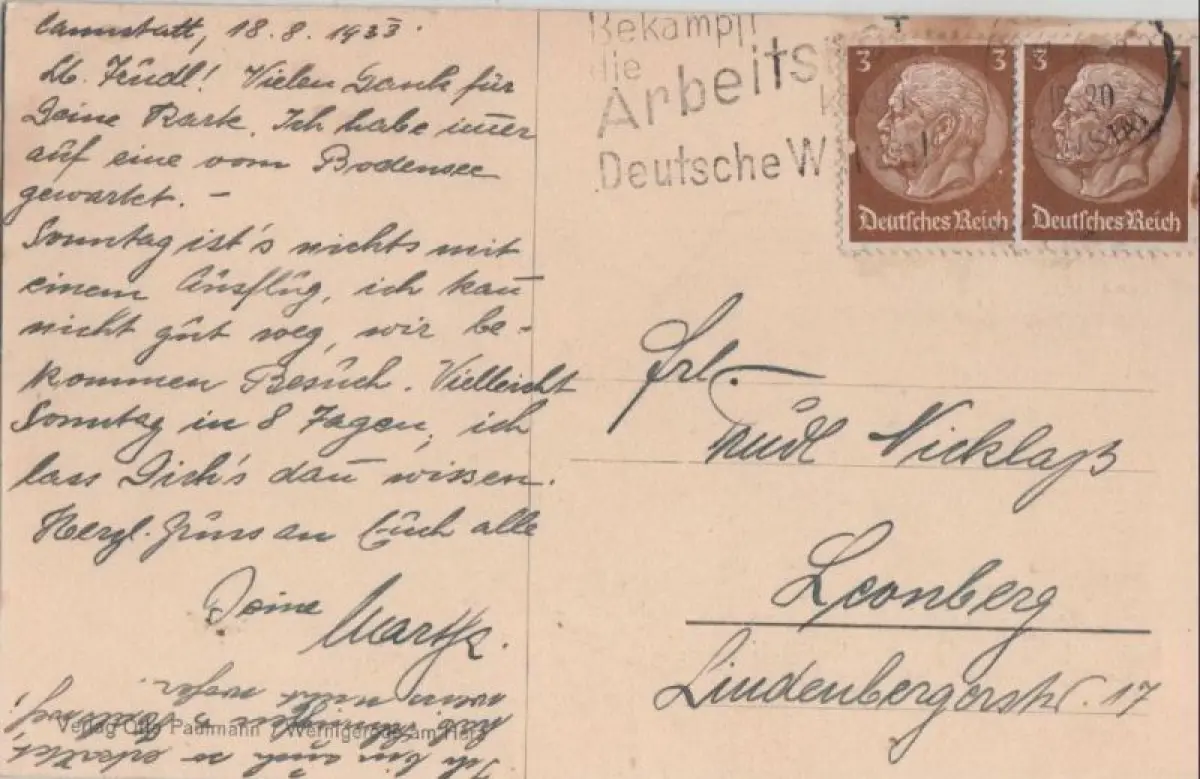 Cannstatt, 18.8.1933.
Lb. Trudl! Vielen Dank für
Deine Karte. Ich habe im̄er
auf eine vom Bodensee
gewartet. –
Sonntag ist's nichts mit
einem Ausflug, ich kan̄
nicht gut weg, wir be-
kommen Besuch. Vielleicht
Sonntag in 8 Tagen, ich
lass Dich's dan̄ wissen.
Herzl. Gruss an Euch alle
Deine
Ich bin auch so erkältet,
hab
Verlag Otto Paulmann, Wernigerode am Harz
Bekämpft
die
Arbeits
Deutsche W
3 3
Deutsches Reich
3
Deutsches Reich
20
Frl.
Trudl Nicklaß
Leonberg
Lindenbergerstr. 17